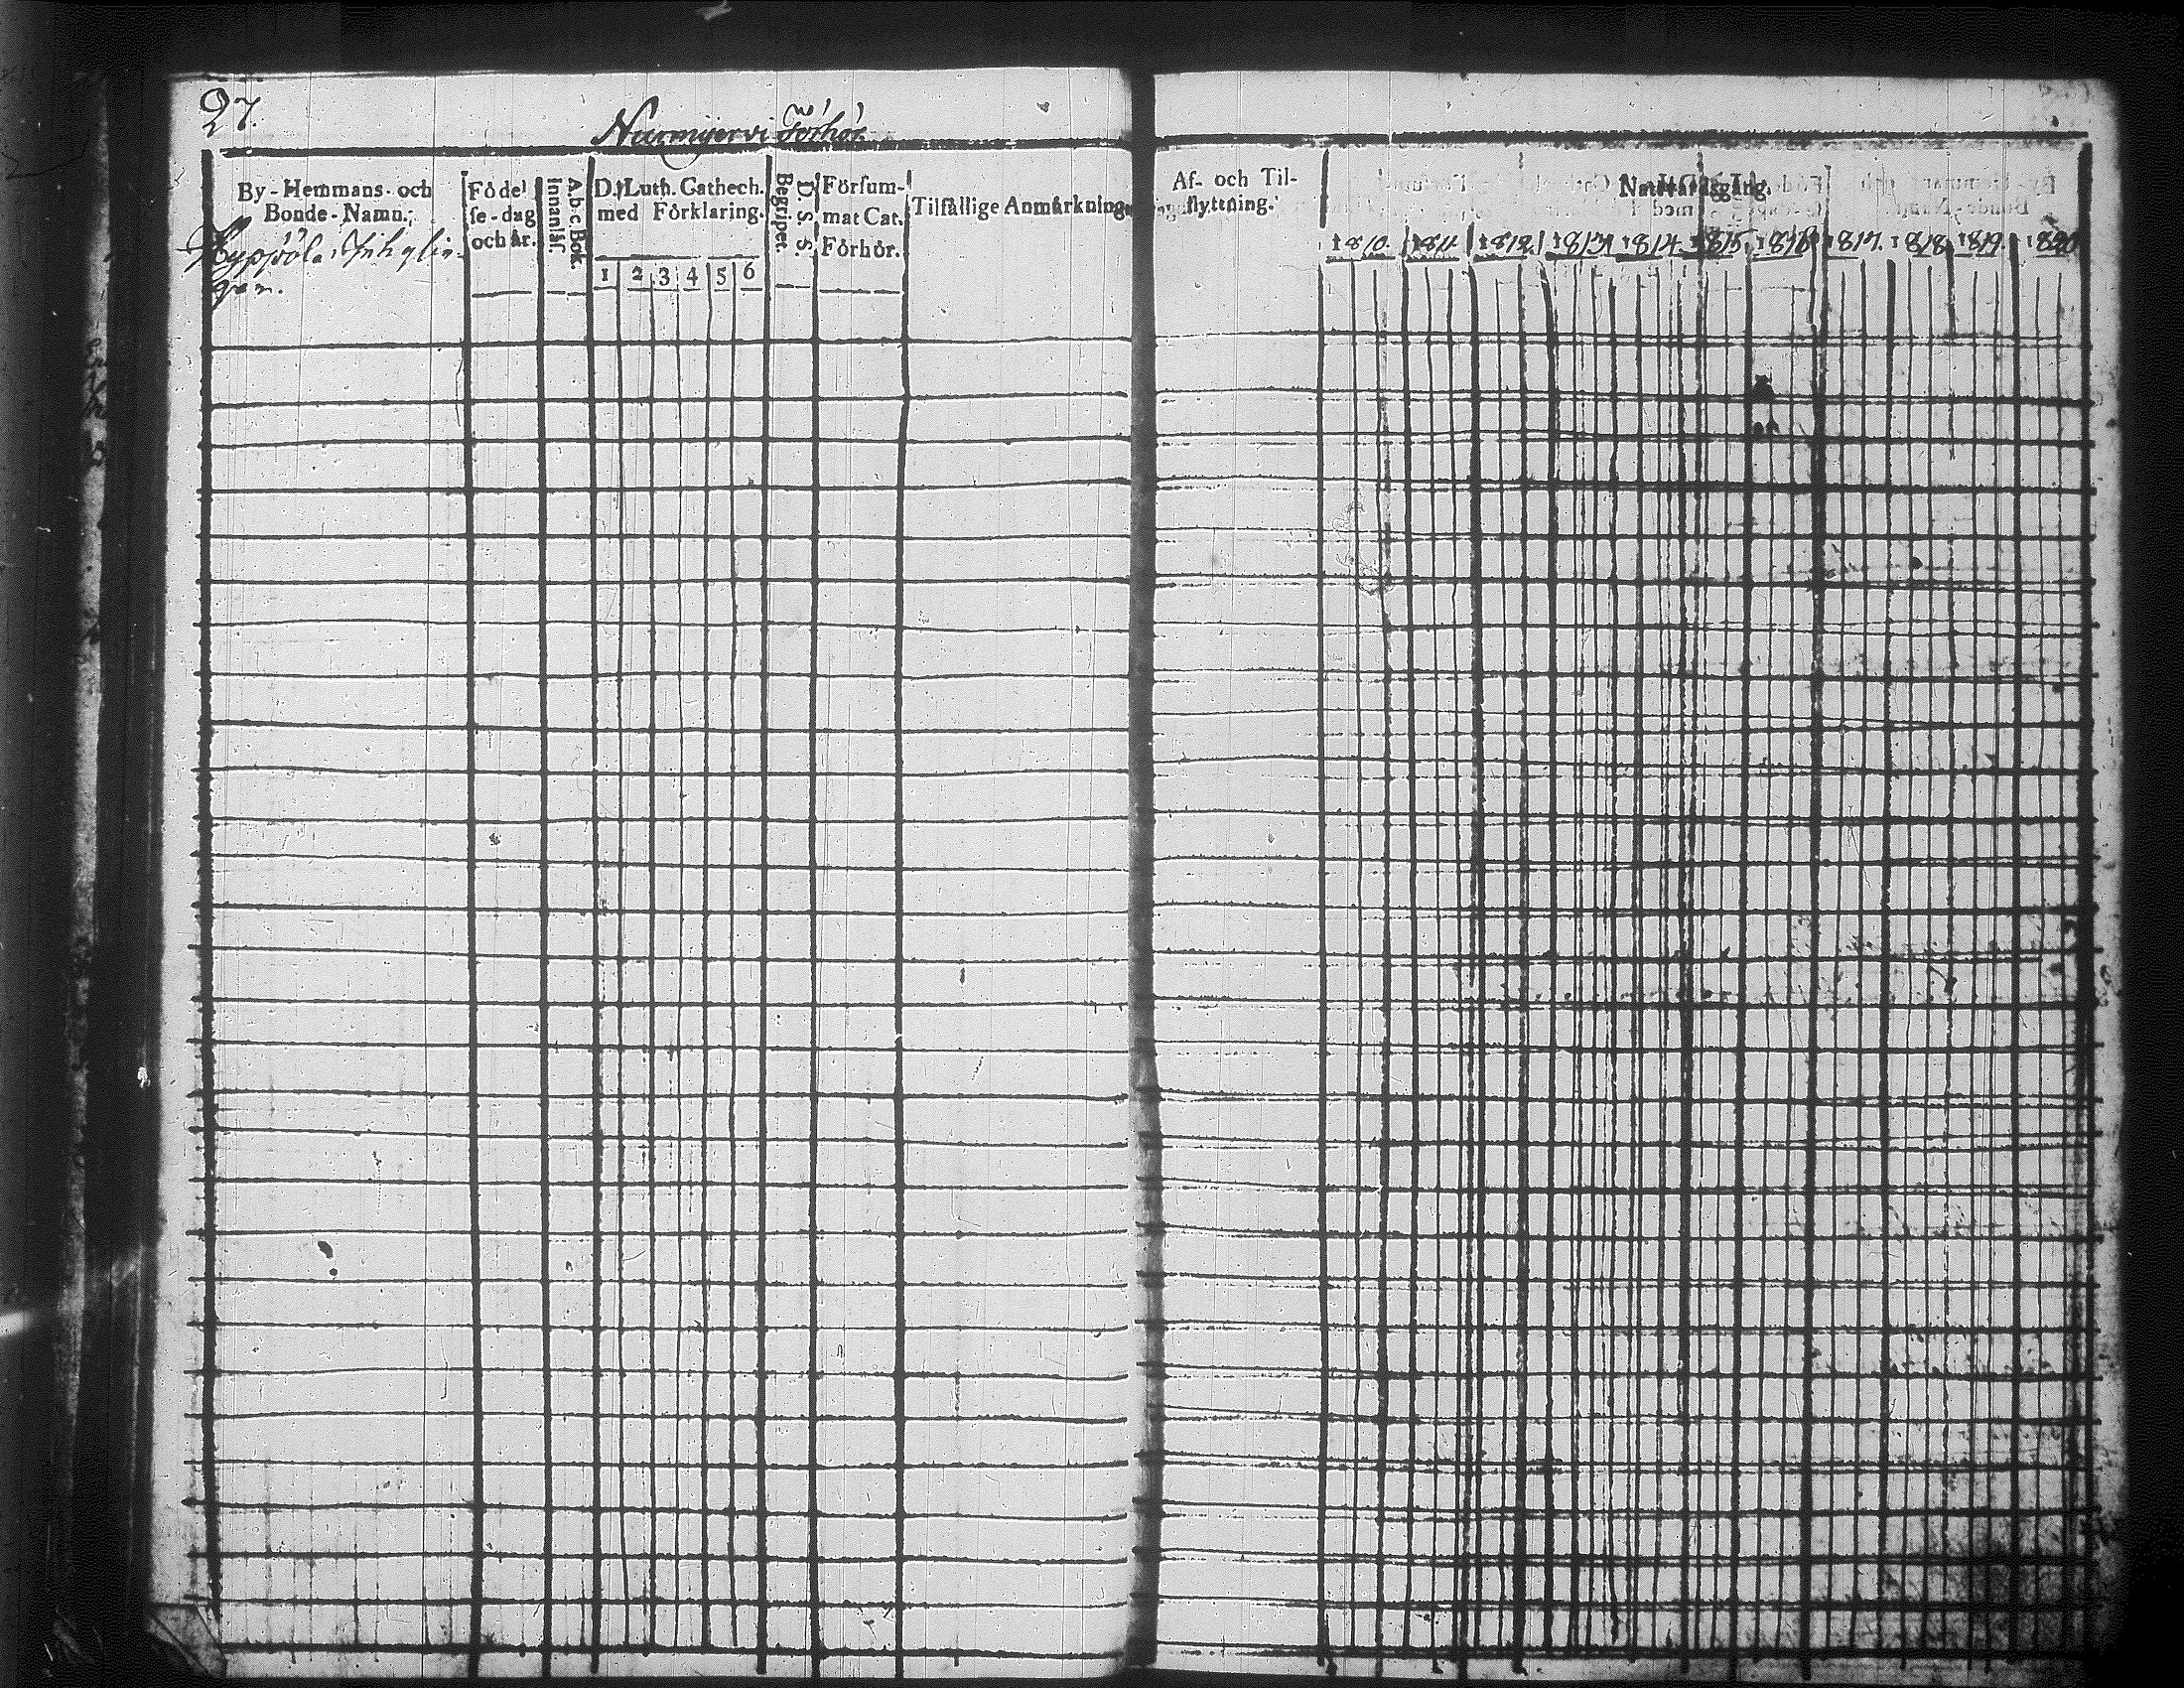 27.
Nurmijervi Förhör
By-Hemmans- och
Bonde-Namn.
Födel
se-dag
och år.
A.b.c. Bok.
Innanläs.
D:r Luth. Cathech.
med Förklaring.
1 2 3 4 5 6
D. S. S.
Begripet.
Försum-
mat Cat.
Förhör.
Tilfällige Anmärkning
Af- och Til-
flyttning.
Nattvardsgång.
1810. 1811 1812 1813 1814 1815 1816 1817. 1818 1819. 1820